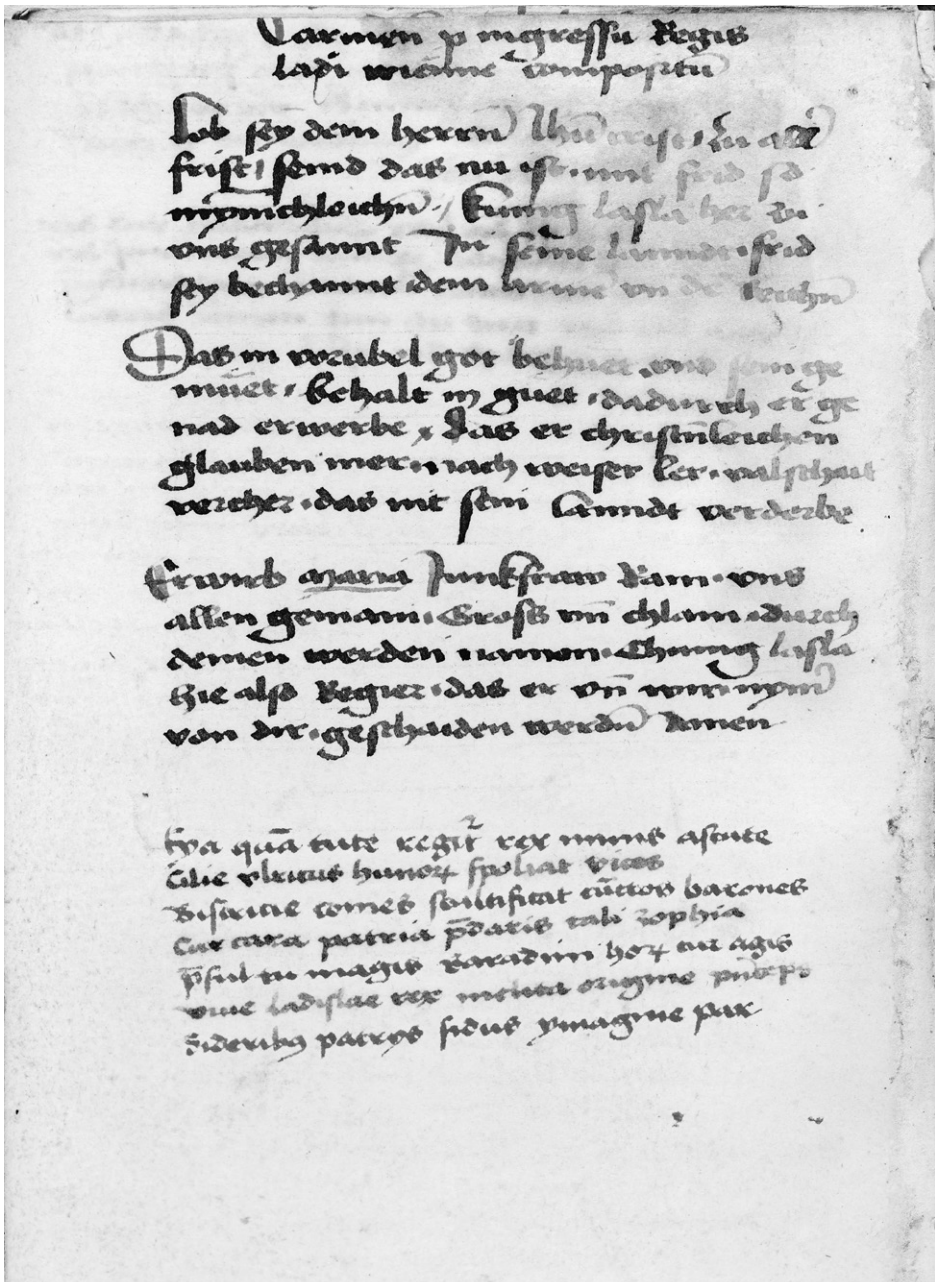 Carmen p ingressu Regis
ladi wienne compositū
Lob sey dem herrn Jhū crist, zu all
frist / seind das nu ist · mit frid so
mynichleichn̄ // kunig lasla her zu
vns gesannt In seine lanndt · frid
sey bechannt · dem arme vn̄ dē Reichn̄
Das in vrubel got behuet · vnd sein ge
müet · behalt in guet · dadurch er ge
nad erwerbe · Das er christnleichen
glauben mer · nach weiser ler · valschait
vercher · das nit sein lanndt verderbe
Erwirb maria Junkfraw Rain · vns
allen gemain · Gross vnd chlain · durch
deinen werden namen · Chunig lasla
hie also Regier · das er vn̄ wir nym̄
von dir · geschaiden werdn̄ Amen
Eya quā tute regit͛ rex nimis astute
Cilie vlricus hunoꝝ spoliat vicos
Bistricie comes santificat cūctos barones
Cur cara patria p̄daris tali zophia
p̄sul tu magis waradini hoꝝ cur agis
viue ladislae rex inclita origine
Sideribꝰ patrys sidus ymagine par